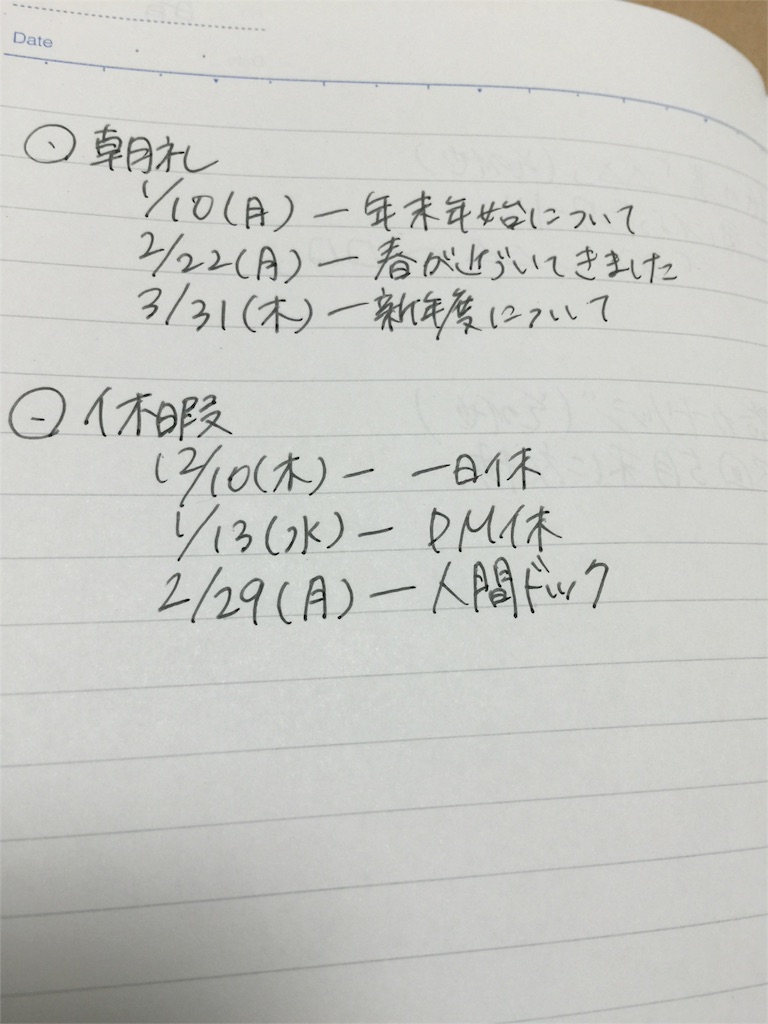 Date
⊙ 朝礼
1/10(月) ー 年末年始について
2/22(月) ー 春が近づいてきました
3/31(木) ー 新年度について
⊖ 休暇
12/10(木) ー 一日休
1/13(水) ー PM休
2/29(月) ー 人間ドック